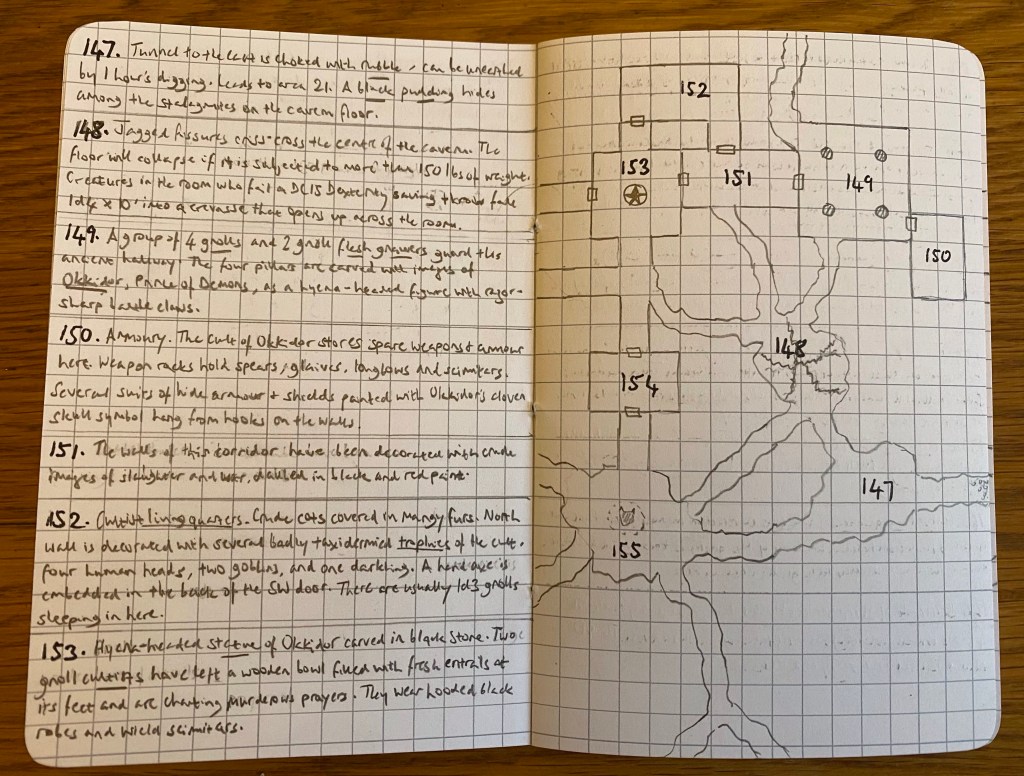 147. Tunnel to the east is choked with rubble, can be unearthed
by 1 hour's digging. Leads to area 21. A black pudding hides
among the stalagmites on the cavern floor.
148. Jagged fissures criss-cross the centre of the cavern. The
floor will collapse if it is subjected to more than 150 lbs of weight.
Creatures in the room who fail a DC15 Dexterity saving throw fall
1d4 x 10' into a crevasse that opens up across the room.
149. A group of 4 gnolls and 2 gnoll flesh gnawers guard this
ancient hallway. The four pillars are carved with images of
Okkidor, Prince of Demons, as a hyena-headed figure with razor-
sharp claws.
150. Armoury. The cult of Okkidor stores spare weapons & armour
here. Weapon racks hold spears, glaives, longbows and scimitars.
Several suits of hide armour & shields painted with Okkidor's cloven
skull symbol hang from hooks on the walls.
151. The walls of this corridor have been decorated with crude
images of slaughter and war, daubed in black and red paint.
152. Cultist living quarters. Crude cots covered in mangy furs. North
wall is decorated with several badly taxidermied trophies of the cult.
four human heads, two goblins, and one darkling. A hand axe is
embedded in the back of the SW door. There are usually 1d3 gnolls
sleeping in here.
153. Hyena-headed statue of Okkidor carved in black stone. Two
gnoll cultists have left a wooden bowl filled with fresh entrails at
its feet and are chanting murderous prayers. They wear hooded black
robes and wield scimitars.
152
153
151
149
150
148
154
147
155